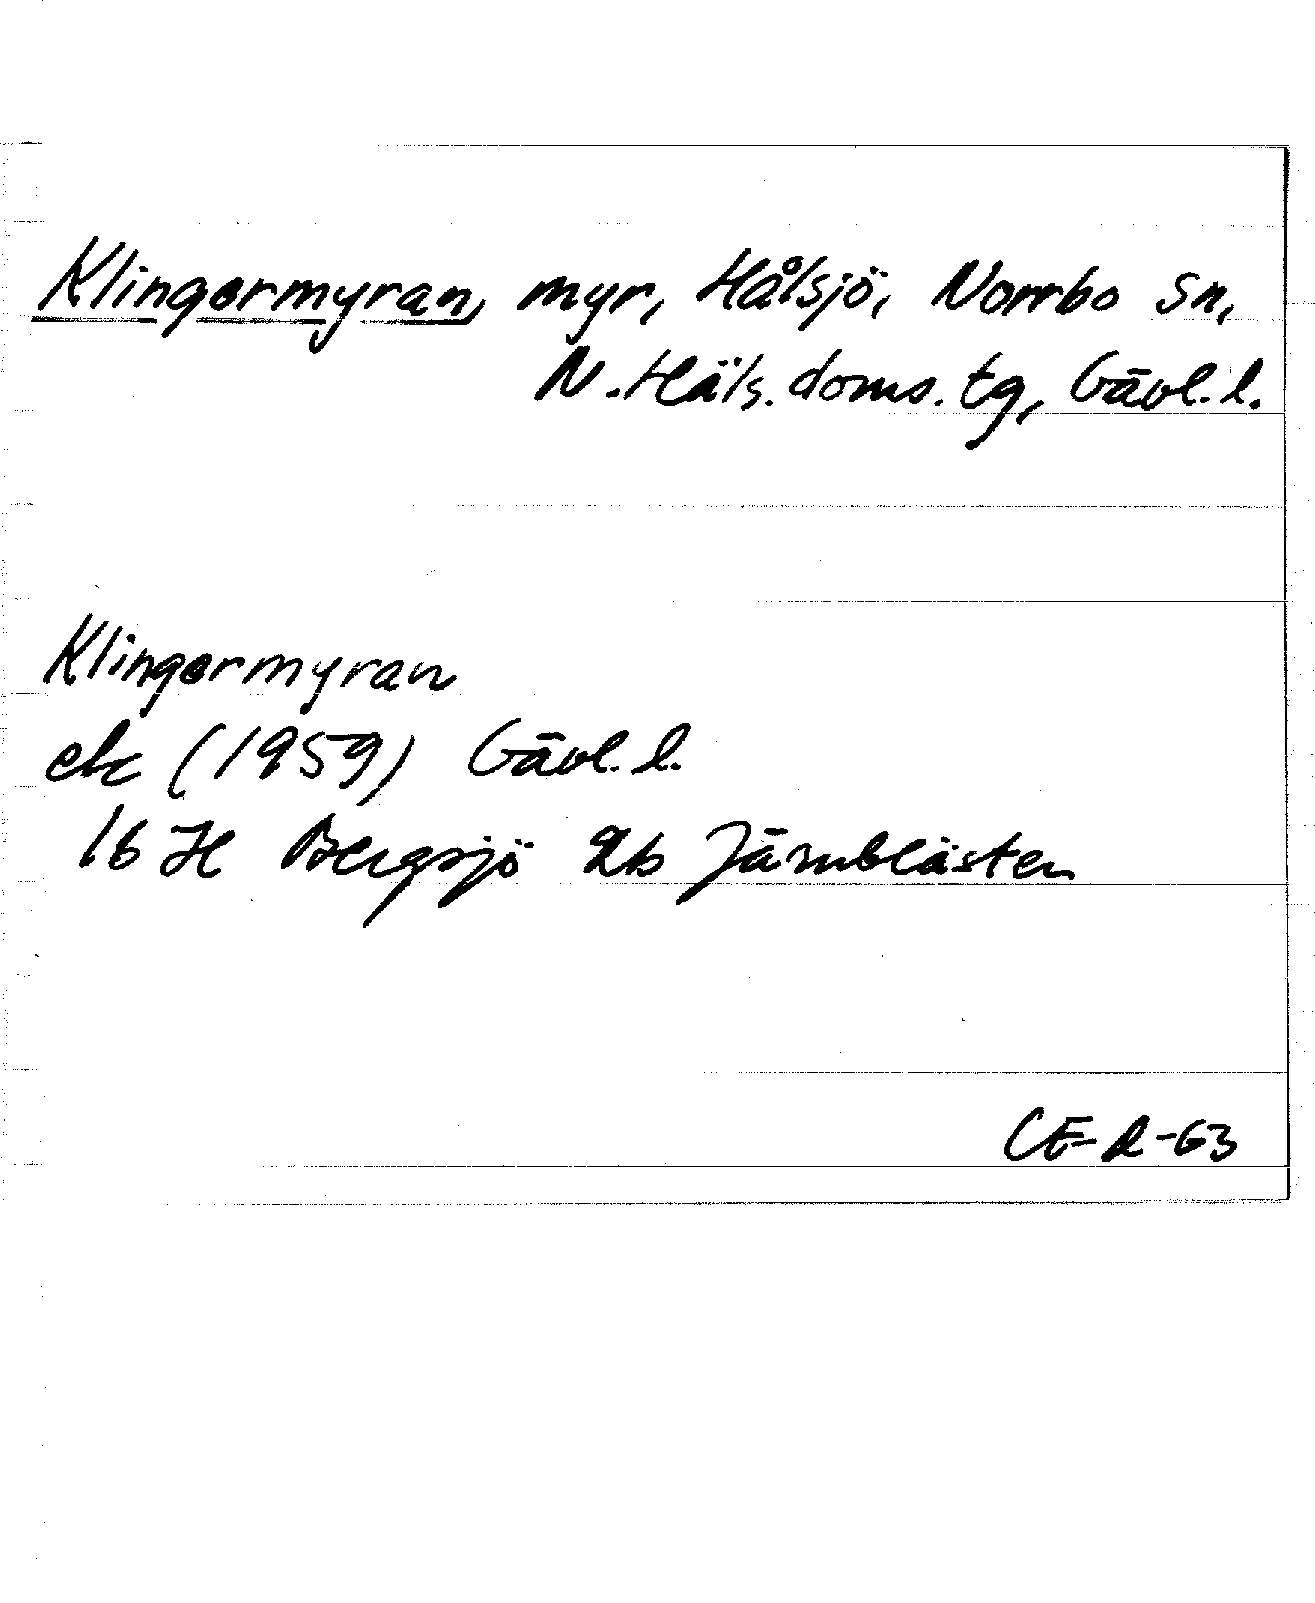 Klingermyran, myr, Hålsjö, Norrbo sn,
N. Häls. doms. tg, Gävl. l.
Klingermyran
ek (1959) Gävl. l.
16 H Bergsjö 2b Järnblästen
CE-R-63